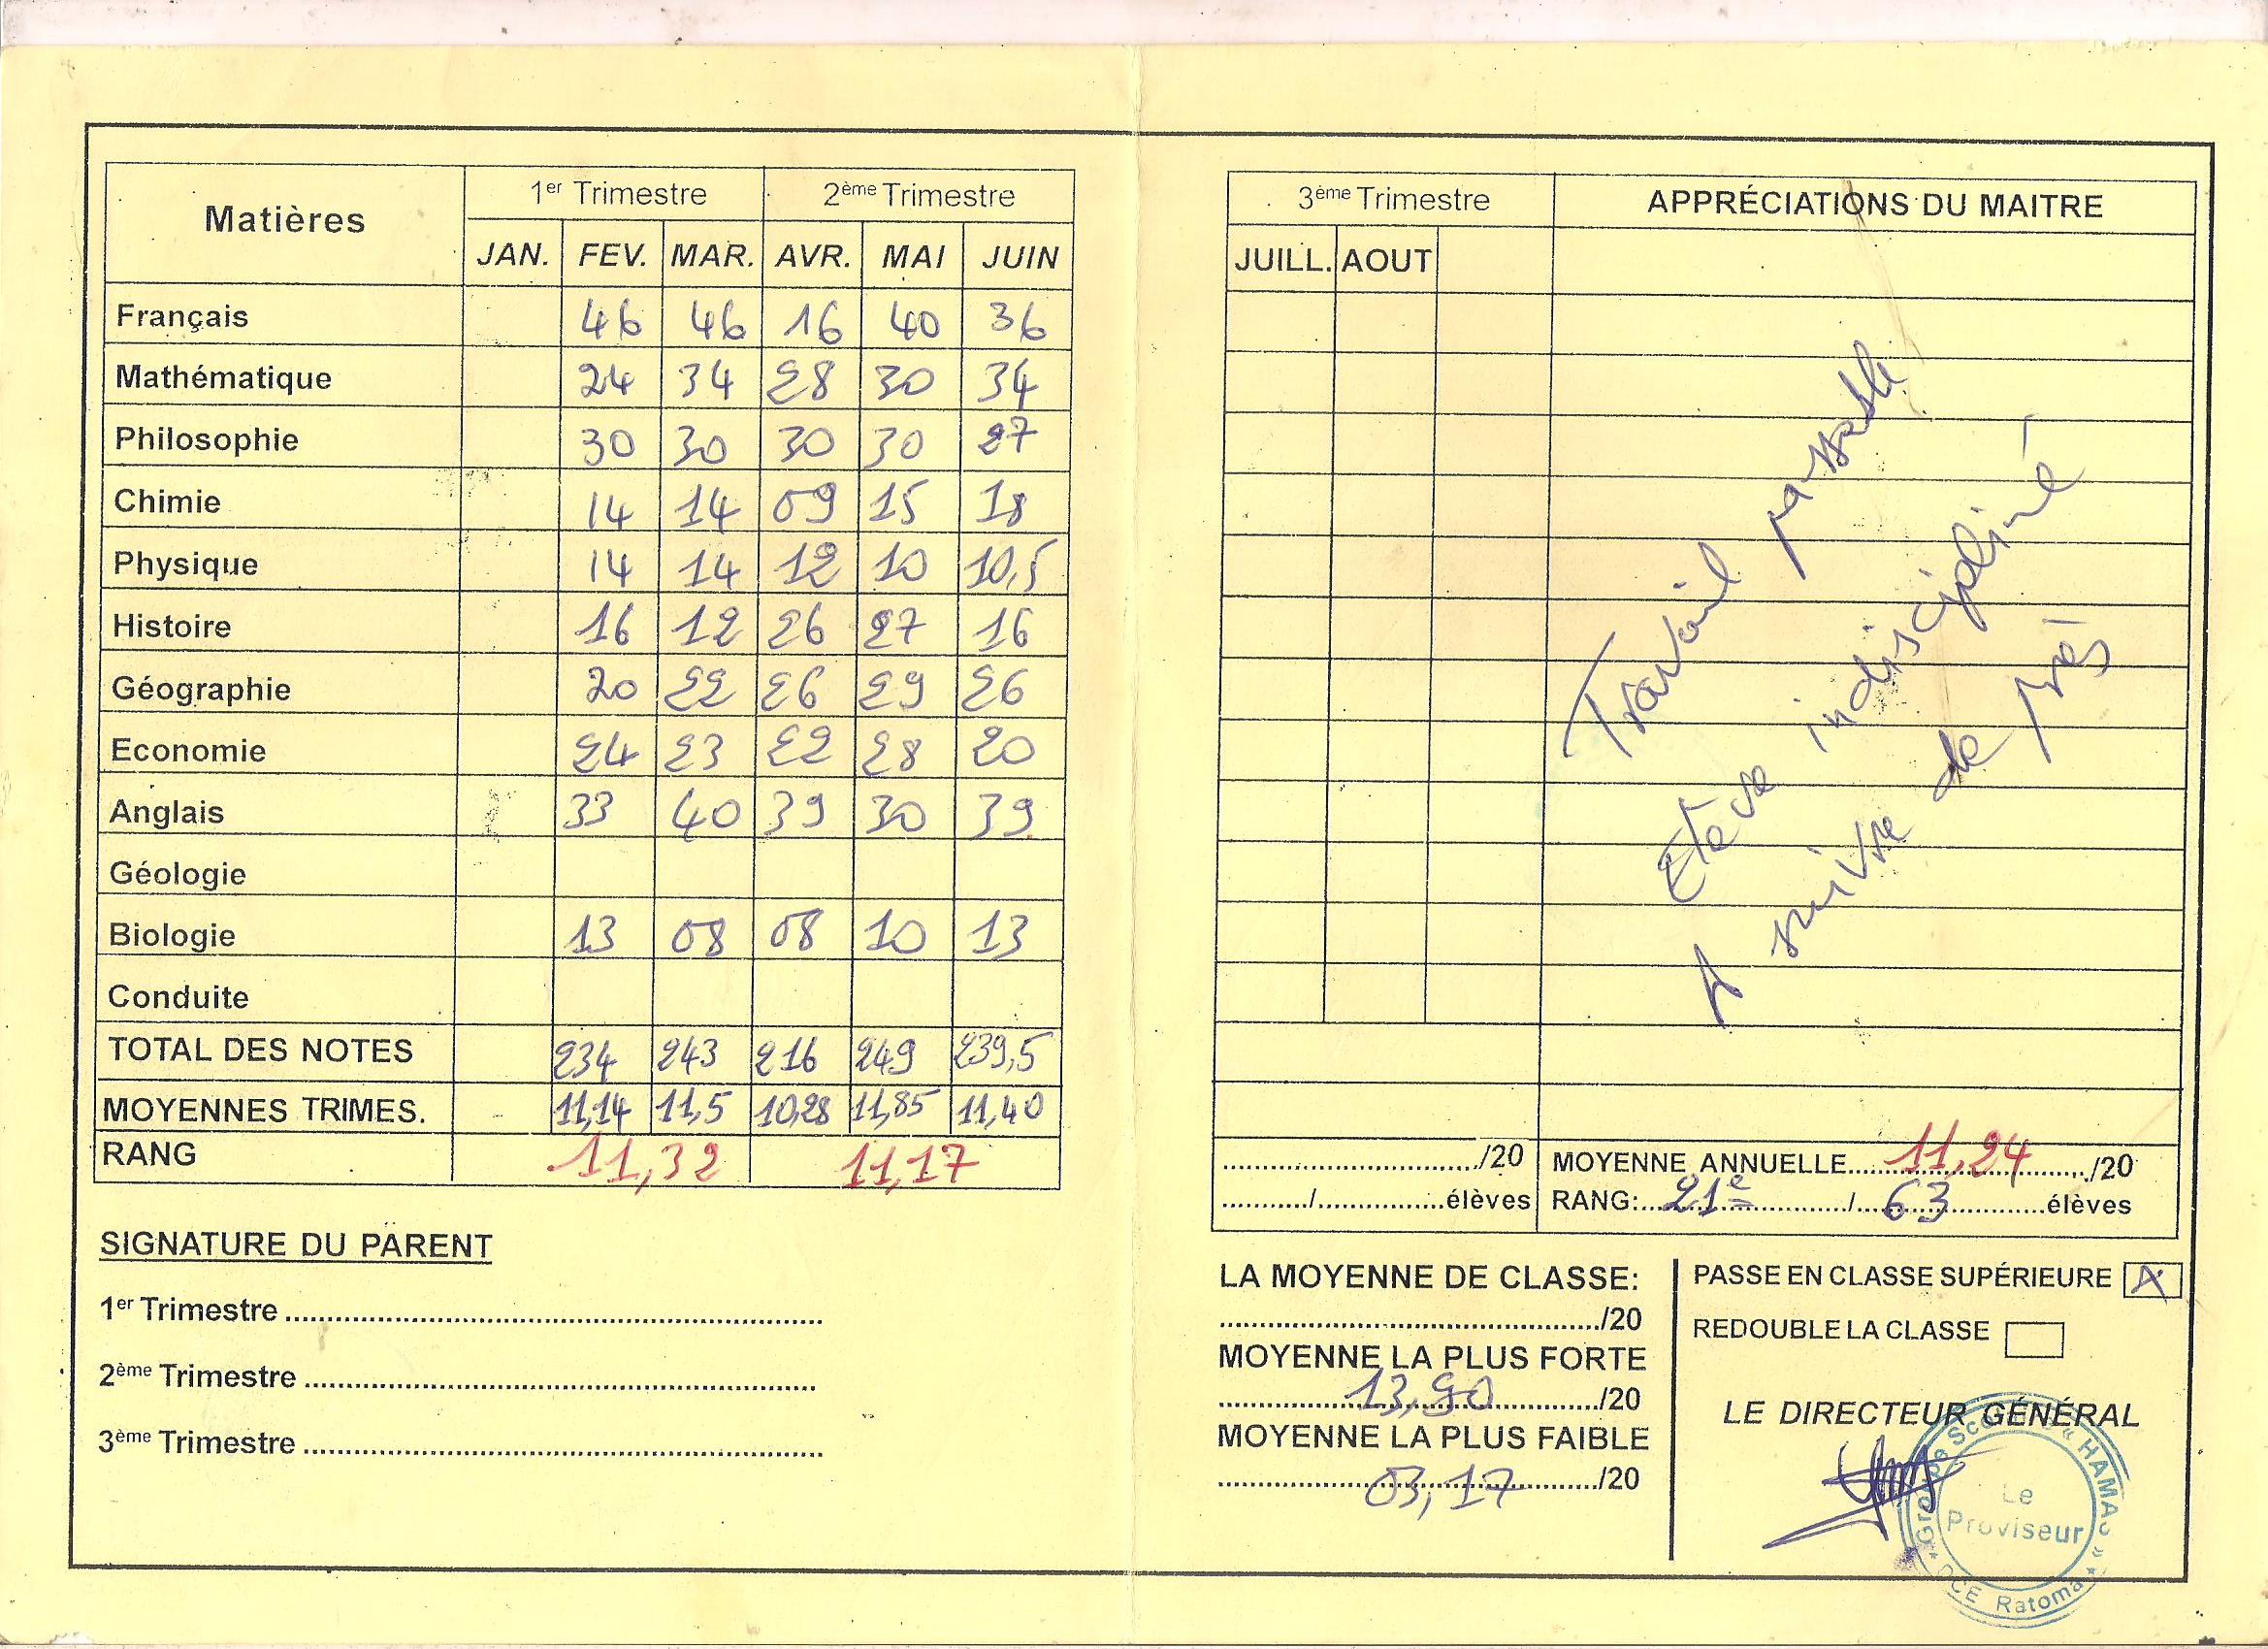 Matières 1er Trimestre 2ème Trimestre
JAN. FEV. MAR. AVR. MAI JUIN
Français 46 46 16 40 36
Mathématique 24 34 28 30 34
Philosophie 30 30 30 30 27
Chimie 14 14 09 15 18
Physique 14 14 12 10 10,5
Histoire 16 12 26 27 16
Géographie 20 22 26 29 26
Economie 24 23 22 28 20
Anglais 33 40 39 30 39
Géologie
Biologie 13 08 08 10 13
Conduite
TOTAL DES NOTES 234 243 216 249 239,5
MOYENNES TRIMES. 11,14 11,5 10,28 11,85 11,40
RANG 11,32 11,17
SIGNATURE DU PARENT
1er Trimestre
2ème Trimestre
3ème Trimestre
3ème Trimestre APPRÉCIATIONS DU MAITRE
JUILL. AOUT
Travail passable
Elève indiscipliné
A suivre de près
/20 MOYENNE ANNUELLE 11,24 /20
/ élèves RANG: 21e / 63 élèves
LA MOYENNE DE CLASSE:
/20
MOYENNE LA PLUS FORTE
13,90 /20
MOYENNE LA PLUS FAIBLE
03,17 /20
PASSE EN CLASSE SUPÉRIEURE X
REDOUBLE LA CLASSE
LE DIRECTEUR GÉNÉRAL
Le
Proviseur
DCE Ratoma